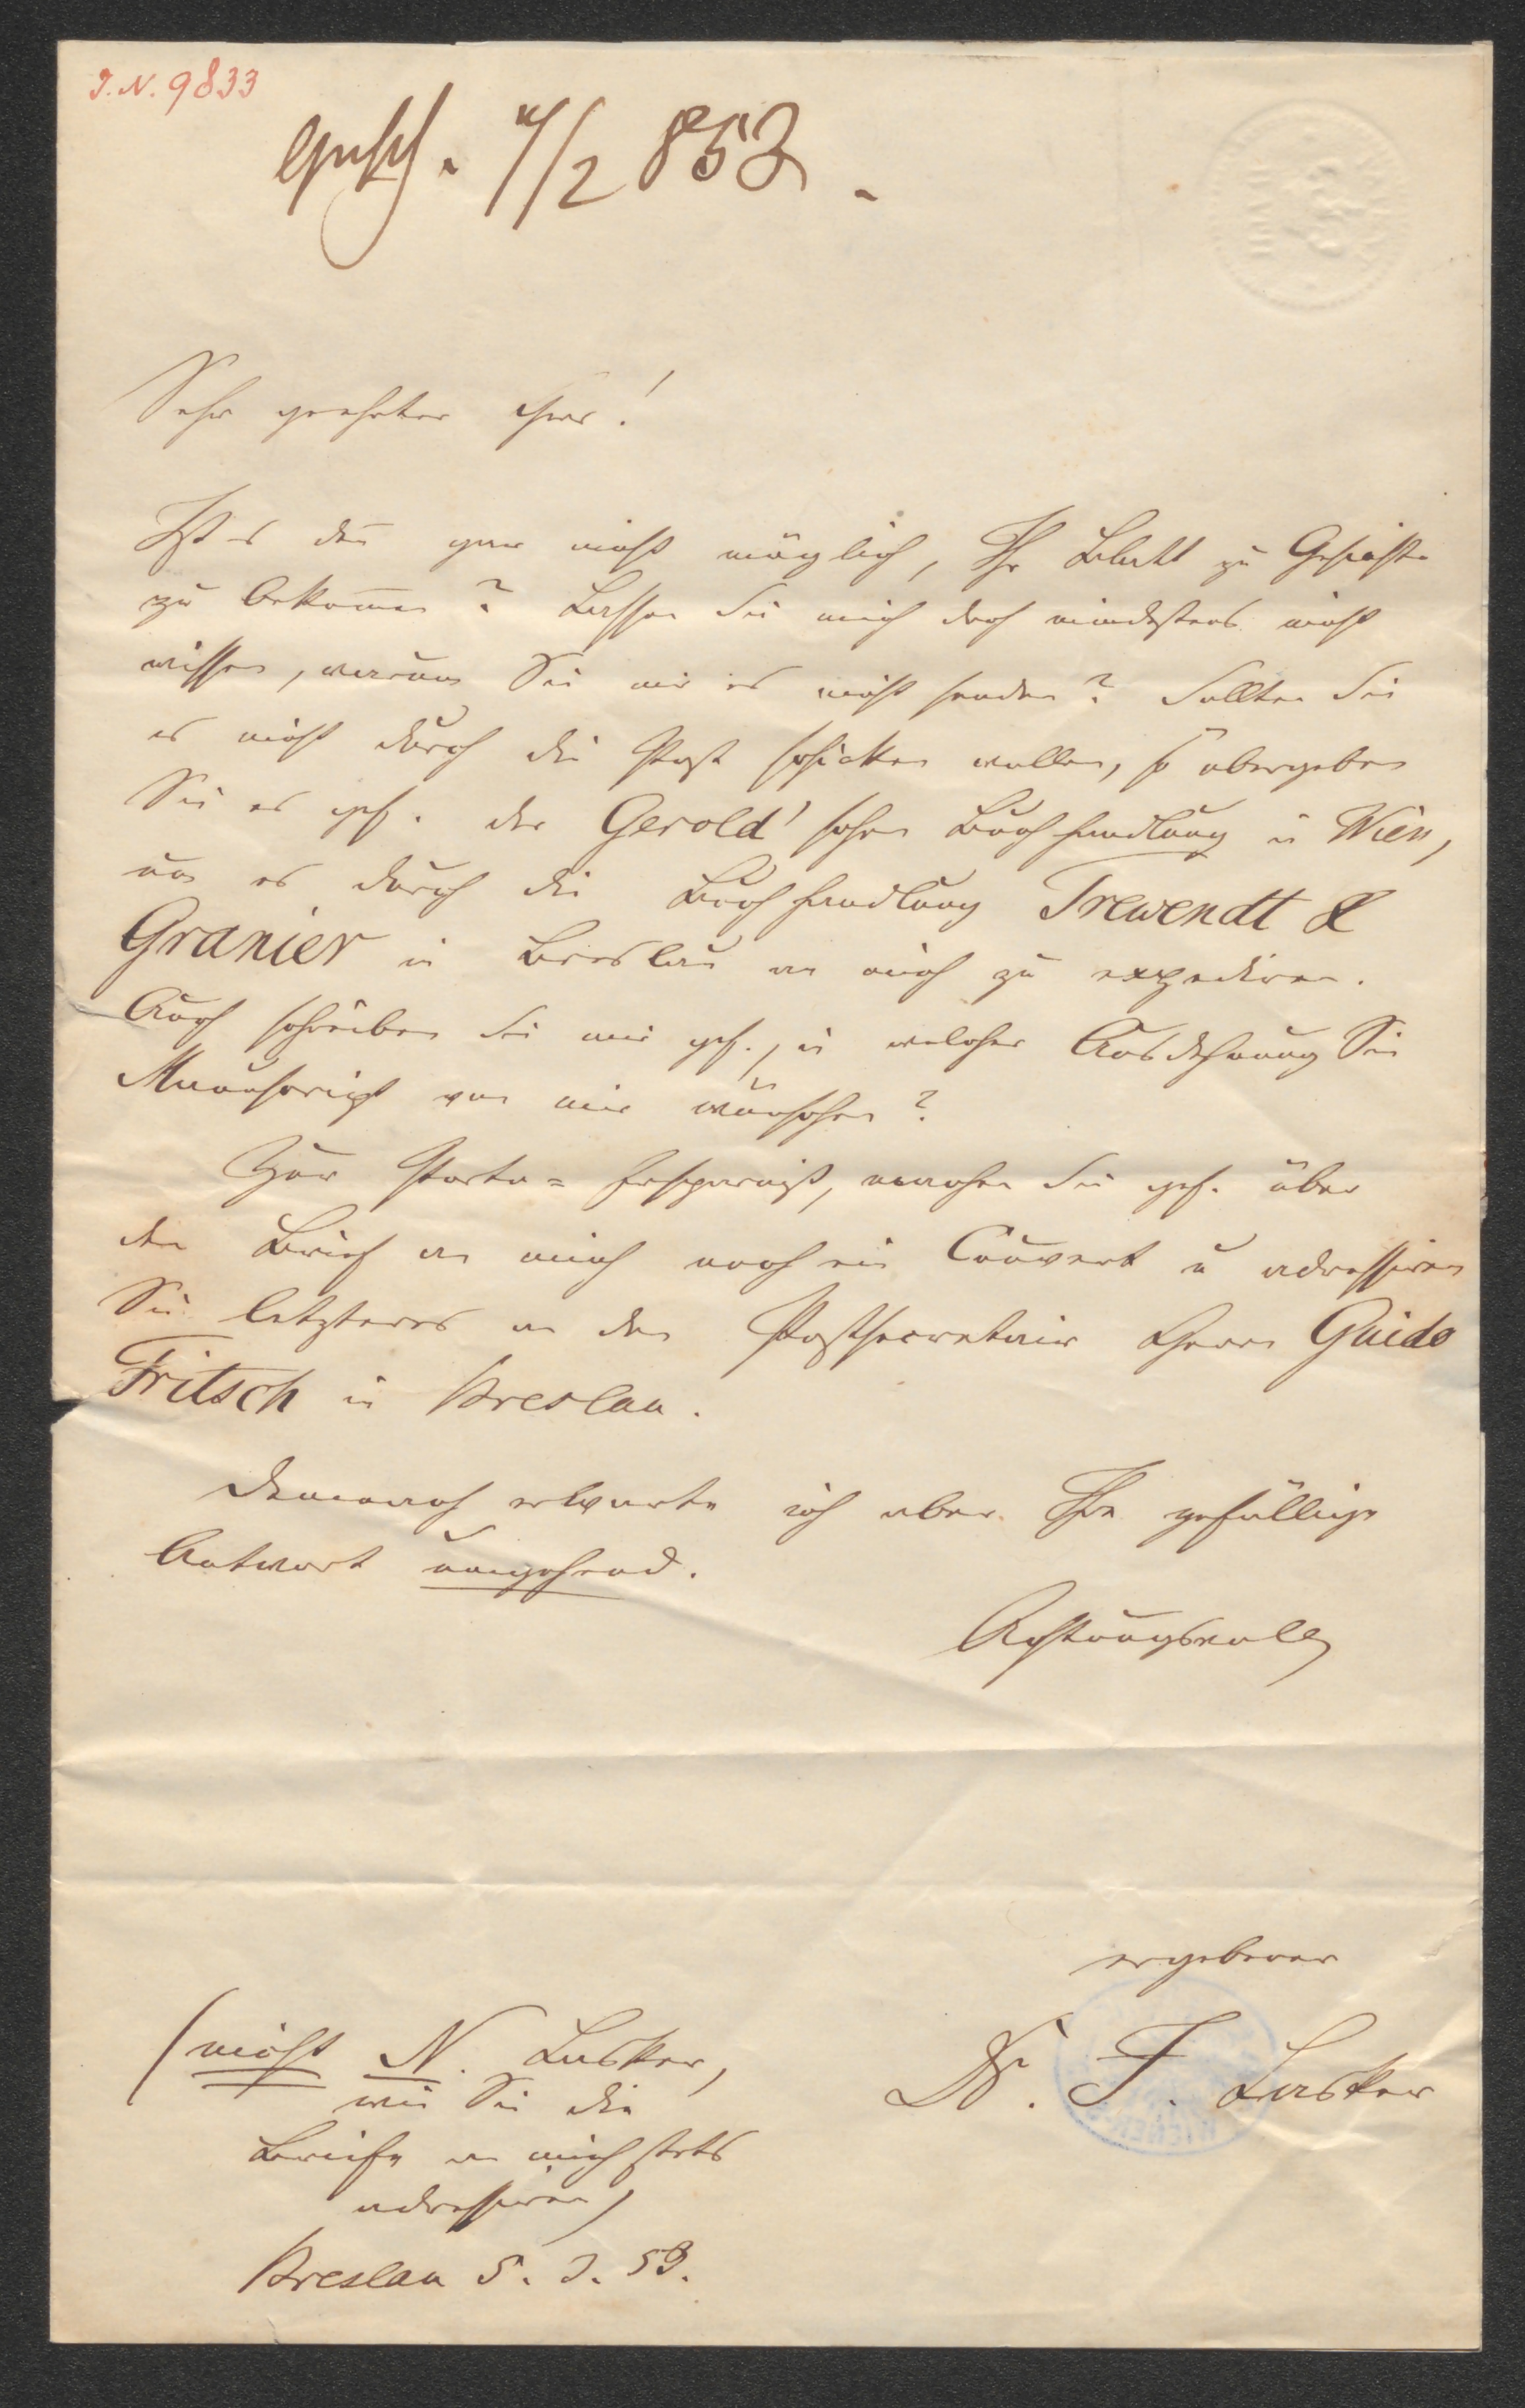 J.N. 9833
4/2 853.
Sehr geehrter Herr!
Ist es den̅ gar nicht möglich, Ihr Blatt zu Gesichte
zu bekom̅en? Lassen Sie mich doch mindestens nicht
wissen, warum Sie mir es nicht senden? Sollten Sie
es nicht durch die Post schicken wollen, so übergeben
Sie es gef. der Gerold'schen Buchhandlung in Wien,
um es durch die Buchhandlung Trewendt &
Granier in Breslau an mich zu expediren.
Auch schreiben Sie mir gef., in welcher Ausdehnung Sie
Manuscript von mir wünschen?
Zur Porto=Ersparniß, machen Sie gef. über
den Brief an mich noch ein Couvert u adressiren
Sie letzteres an den Postsecretair Herrn Guido
Fritsch in Breslau.
Demnach erwarte ich aber Ihre gefällige
Antwort umgehend.
Achtungsvoll
ergebener
Dr. I. Lasker
(nicht N. Lasker,
wie Sie die
Briefe an mich stets
adressiren)
Breslau 5. 2. 53.